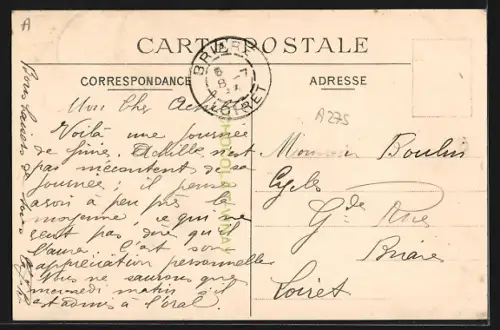 A
CARTE POSTALE
CORRESPONDANCE
ADRESSE
BRIARE
LOIRET
A275
Mon Cher
Voilà une journée
de finie. Achille n'est
pas mécontent de sa
journée ; il pense
avoir à peu près la
moyenne, ce qui ne
veut pas dire qu'il
l'aura. C'est son
appréciation personnelle
Nous ne saurons que
mercredi matin s'il
est admis à l'oral.
Bons baisers de
Monsieur Boulin
Cycles
Gde Rue
Briare
Loiret